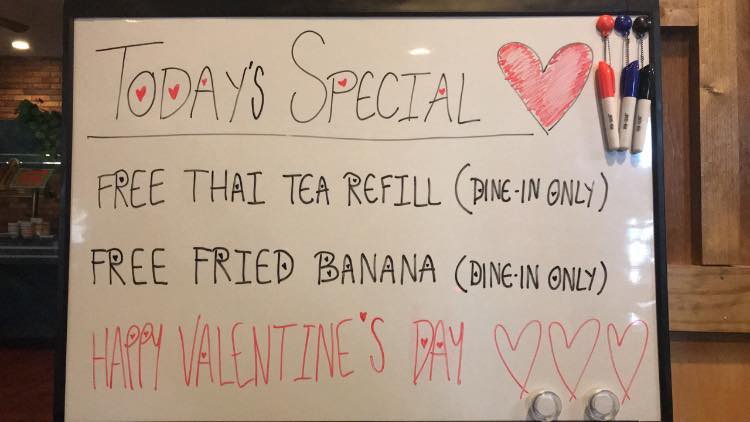 TODAY'S SPECIAL
FREE THAI TEA REFILL (DINE-IN ONLY)
FREE FRIED BANANA (DINE-IN ONLY)
HAPPY VALENTINE'S DAY